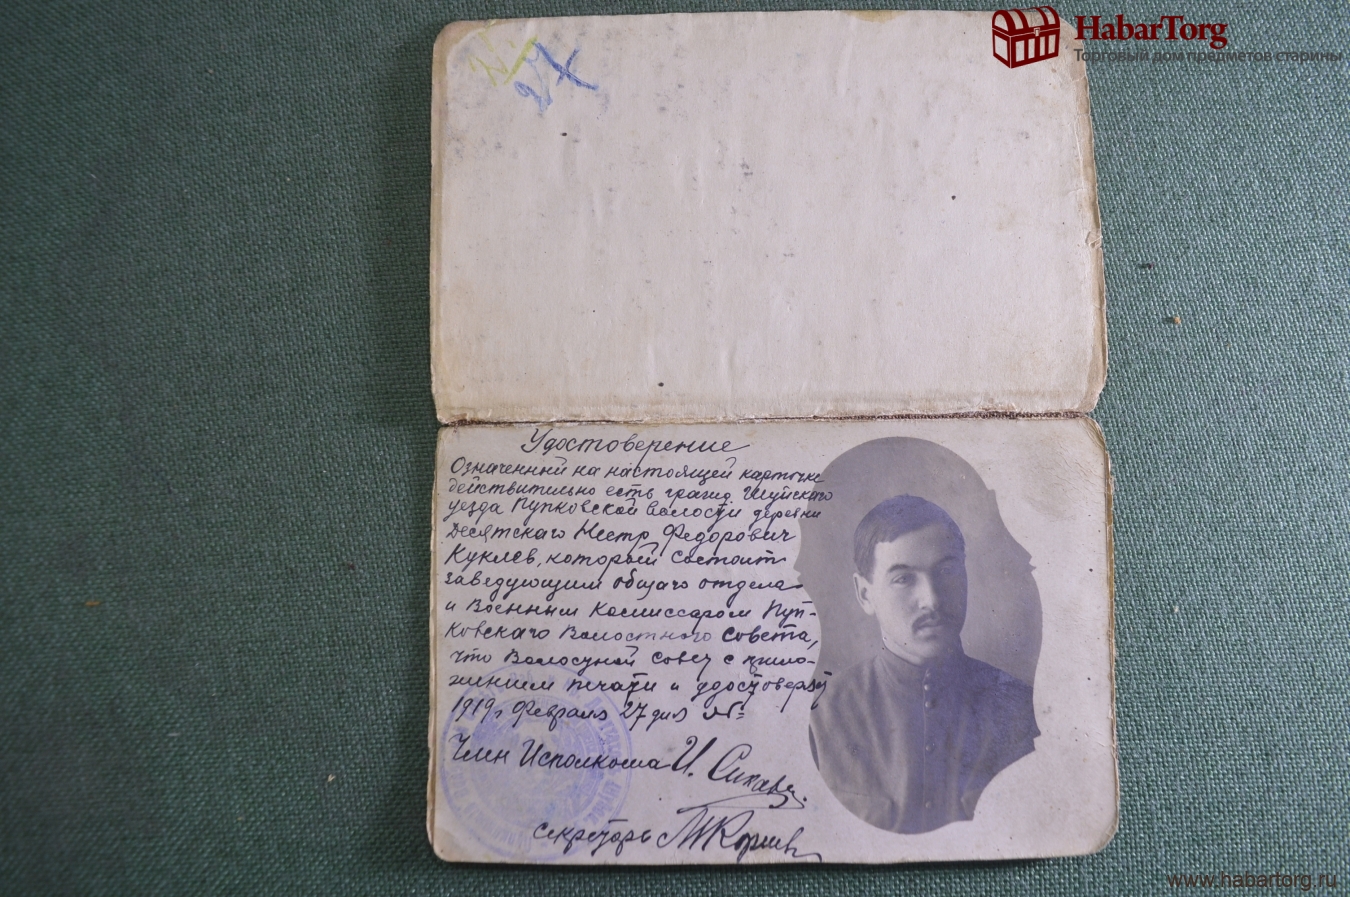 HabarTorg
Торговый дом предметов старины
27
Удостоверение
Означенный на настоящей карточке
действительно есть гражд. Шуйскаго
уезда Пупковской волости деревни
Десятскаго Нестр Федорович
Куклев, который состоит
заведующим общаго отдела
и Военным Комиссаром Пуп-
ковскаго Волостного Совета,
что Волосуной совет с прило-
жением печати и удостоверяет
1919 г Февраля 27 дня №=
Член Исполкома И.
секретарь
www.habartorg.ru